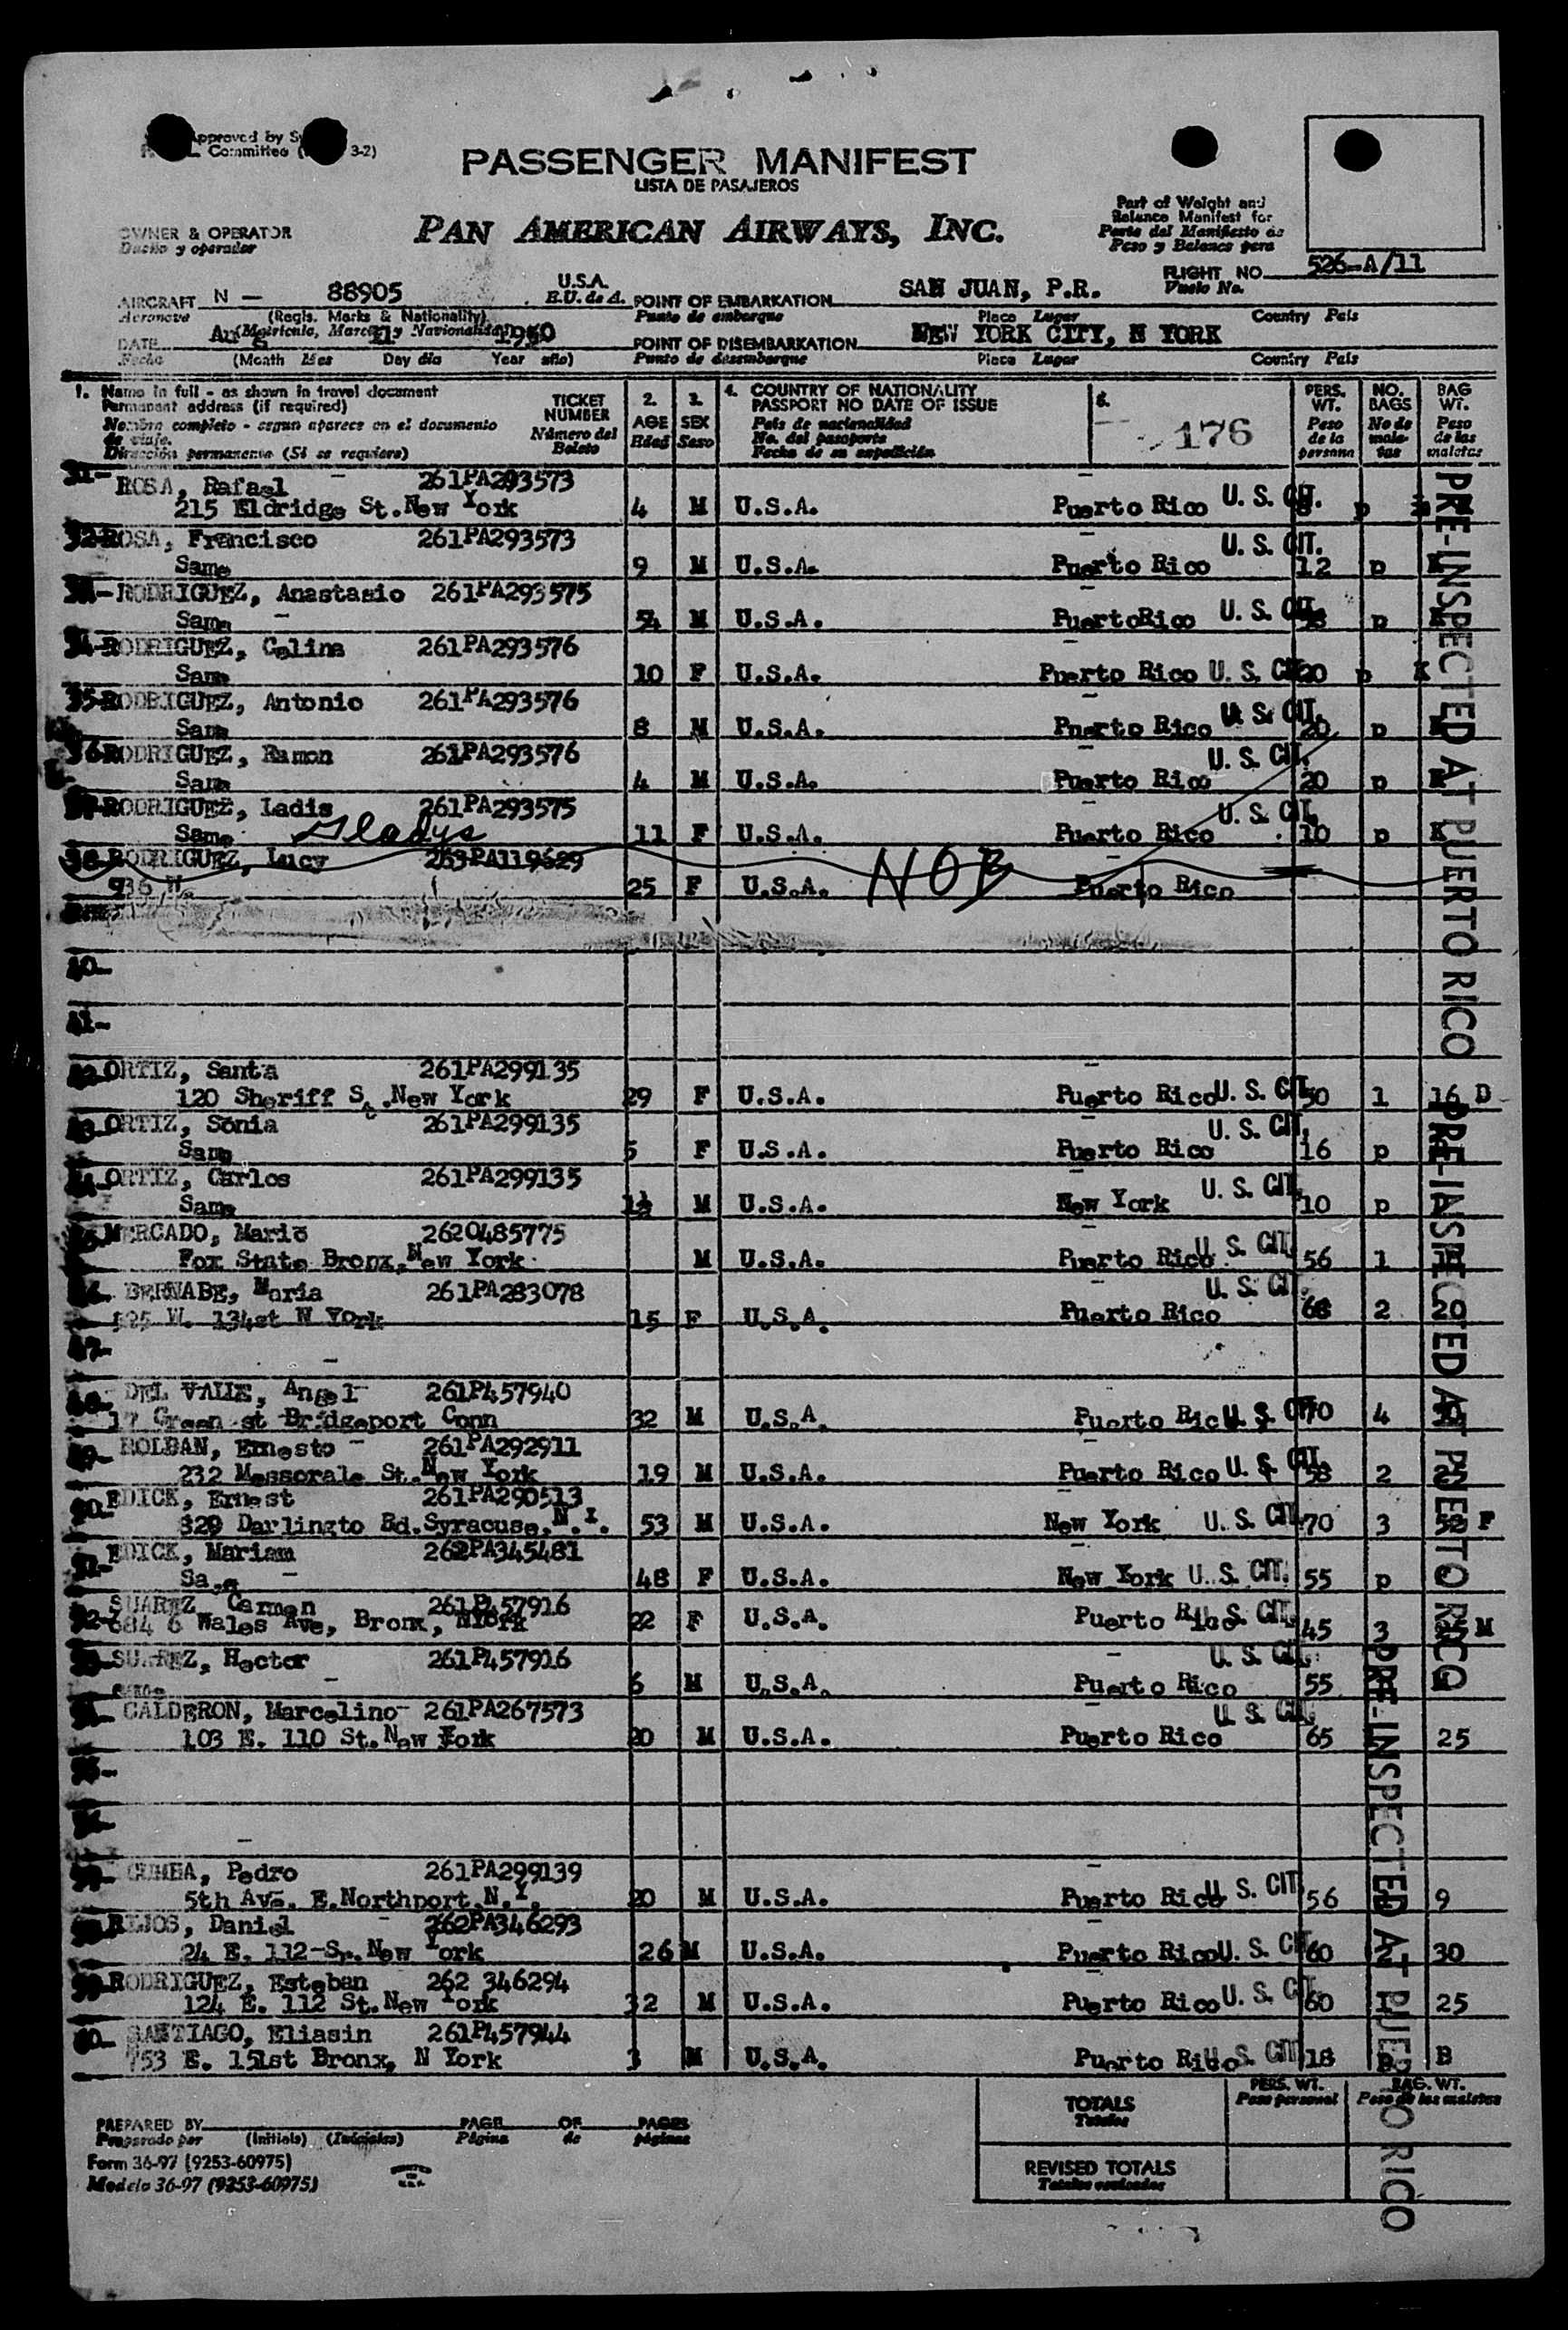 Approved by
Committee 3-2)
PASSENGER MANIFEST
LISTA DE PASAJEROS
OWNER & OPERATOR
Dueño y operador
PAN AMERICAN AIRWAYS, INC.
Part of Weight and
Balance Manifest for
Parte del Manifiesto de
Peso y Balance para
FLIGHT NO. 526-A/11
Vuelo No.
AIRCRAFT N - 88905 U.S.A.
Aeronave (Regis. Marks & Nationality) E.U. de A.
(Matricula, Marcas y Nacionalidad)
POINT OF EMBARKATION SAN JUAN, P.R.
Punto de embarque Place Lugar Country Pais
DATE Aug 11 1950
Fecha (Month Mes Day dia Year año)
POINT OF DISEMBARKATION NEW YORK CITY, N YORK
Punto de desembarque Place Lugar Country Pais
1. Name in full - as shown in travel document
Permanent address (if required)
Nombre completo - segun aparece en el documento
de viaje.
Dirección permanente (Si se requiere)
TICKET
NUMBER
Número del
Boleto
2.
AGE
Edad
3.
SEX
Sexo
4. COUNTRY OF NATIONALITY
PASSPORT NO DATE OF ISSUE
Pais de nacionalidad
No. del pasaporte
Fecha de su expedición
176
PERS.
WT.
Peso
de la
persona
NO.
BAGS
No de
male-
tas
BAG
WT.
Peso
de las
maletas
31- ROSA, Rafael 261PA293573
215 Eldridge St. New York 4 M U.S.A. Puerto Rico U. S. CIT. p
32- ROSA, Francisco 261PA293573
Same 9 M U.S.A. Puerto Rico U. S. CIT. 12 p
RODRIGUEZ, Anastasio 261PA293575
Same M U.S.A. PuertoRico U. S. CIT. p
34- RODRIGUEZ, Celina 261PA293576
Same 10 F U.S.A. Puerto Rico U. S. CIT. 20 p K
35- RODRIGUEZ, Antonio 261PA293576
Same 8 M U.S.A. Puerto Rico U. S. CIT. 20 p
36 RODRIGUEZ, Ramon 261PA293576
Same 4 M U.S.A. Puerto Rico U. S. CIT. 20 p
37- RODRIGUEZ, Ladis 261PA293575
Same Gladys 11 F U.S.A. Puerto Rico U. S. CIT. 10 p K
38 RODRIGUEZ, Lucy 263-PA119629
936 25 F U.S.A. NOB Puerto Rico
40-
41-
42 ORTIZ, Santa 261PA299135
120 Sheriff St. New York 29 F U.S.A. Puerto Rico U. S. CIT. 50 1 16 D
43 ORTIZ, Sonia 261PA299135
Same 5 F U.S.A. Puerto Rico U. S. CIT. 16 p
ORTIZ, Carlos 261PA299135
Same M U.S.A. New York U. S. CIT. 10 p
MERCADO, Mario 2620485775
Fox State Bronx, New York M U.S.A. Puerto Rico U. S. CIT. 56 1
BERNABE, Maria 261PA283078
525 W. 134st N York 15 F U.S.A. Puerto Rico U. S. CIT. 68 2 20
47-
DEL VALLE, Angel 261P457940
17 Green st Bridgeport Conn 32 M U.S.A. Puerto Rico U. S. CIT. 70 4
ROLDAN, Ernesto 261PA292911
232 Messorale St. New York 19 M U.S.A. Puerto Rico U. S. CIT. 58 2
50- EDICK, Ernest 261PA290513
329 Darlingto Rd. Syracuse, N.Y. 53 M U.S.A. New York U. S. CIT. 70 3 F
EDICK, Mariam 262PA345481
Same 48 F U.S.A. New York U. S. CIT. 55 p
52- SUAREZ Carmen 261P457916
684 6 Wales Ave, Bronx, NYork 22 F U.S.A. Puerto Rico U. S. CIT. 45 3 M
SUAREZ, Hector 261P457916
same 6 M U.S.A. Puerto Rico U. S. CIT. 55
CALDERON, Marcelino 261PA267573
103 E. 110 St. New York 20 M U.S.A. Puerto Rico U. S. CIT. 65 25
Pedro 261PA299139
5th Ave. E. Northport, N.Y. 20 M U.S.A. Puerto Rico U. S. CIT. 56 9
Daniel 262PA346293
24 E. 112-St. New York 26 M U.S.A. Puerto Rico U. S. CIT. 60 2 30
RODRIGUEZ, Esteban 262 346294
124 E. 112 St. New York 32 M U.S.A. Puerto Rico U. S. CIT. 60 25
60- SANTIAGO, Eliasin 261P457944
753 E. 151st Bronx, N York 3 M U.S.A. Puerto Rico U. S. CIT. 18 B
PRE-INSPECTED AT PUERTO RICO
PRE-INSPECTED AT PUERTO RICO
PRE-INSPECTED AT PUERTO RICO
TOTALS
Totales
PERS. WT.
Peso personal
BAG. WT.
Peso de las maletas
REVISED TOTALS
Totales revisados
PREPARED BY PAGE OF PAGES
Preparado por (Initials) (Iniciales) Página de páginas
Form 36-97 (9253-60975)
Modelo 36-97 (9253-60975)